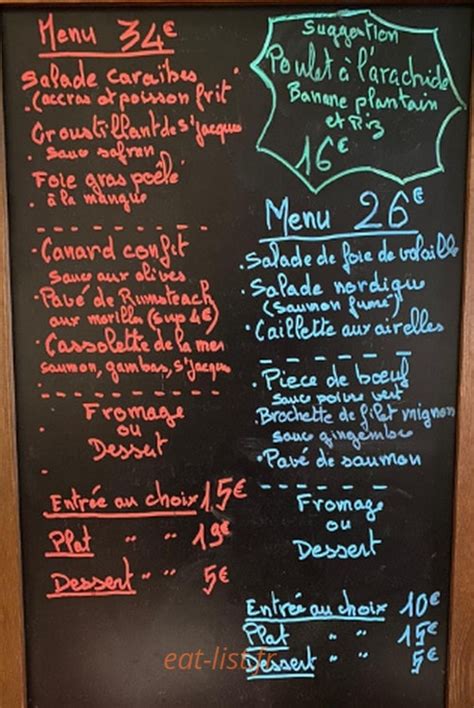 Menu 34€
Salade caraïbes
(accras et poisson frit)
Croustillant de S'Jacques
. sauce safran
Foie gras poêlé
. à la mangue
. Canard confit
sauce aux olives
. Pavé de Rumsteack
aux morilles (sup 4€)
. Cassolette de la mer
saumon, gambas, S'Jacques
Fromage
ou
Dessert
Entrée au choix 15€
Plat " " 19€
Dessert " " 5€
Suggestion
Poulet à l'arachide
Banane plantain
et Riz
16€
Menu 26€
. Salade de foie de volaille
. Salade nordique
(Saumon fumé)
. Caillette aux airelles
. Piece de bœuf
sauce poivre vert
Brochette de filet mignon
sauce gingembre
. Pavé de saumon
Fromage
ou
Dessert
Entrée au choix 10€
Plat " " 15€
Dessert " " 5€
eat-list.fr